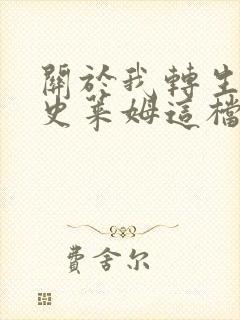 關於我轉生
史萊姆這檔
費舍尔